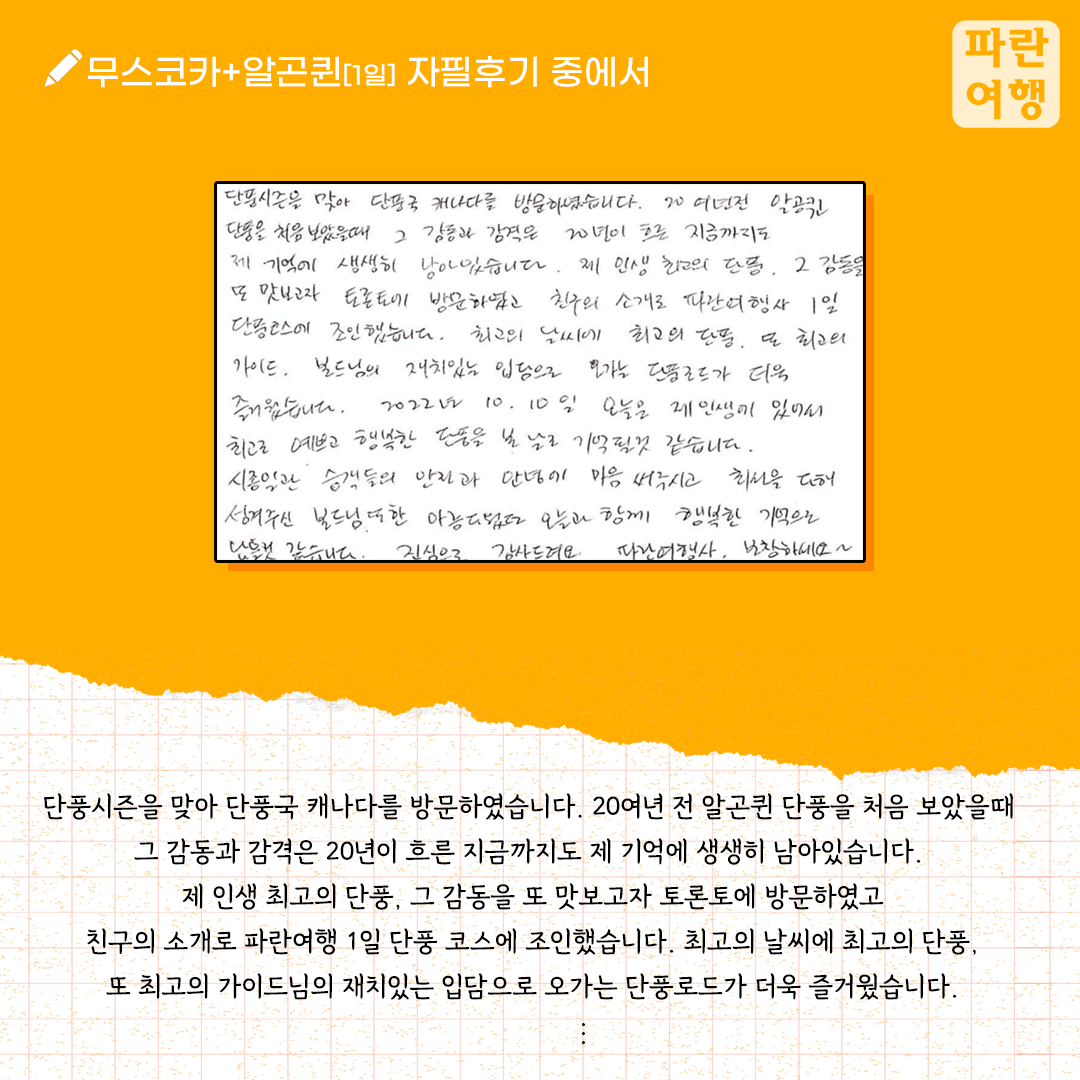 무스코카+알곤퀸[1일] 자필후기 중에서
파란
여행
단풍시즌을 맞아 단풍국 캐나다를 방문하였습니다. 20여년전 알공퀸
단풍을 처음 보았을때 그 감동과 감격은 20년이 흐른 지금까지도
제 기억에 생생히 남아있습니다. 제 인생 최고의 단풍, 그 감동을
또 맛보고자 토론토에 방문하였고 친구의 소개로 파란여행사 1일
단풍코스에 조인했습니다. 최고의 날씨에 최고의 단풍, 또 최고의
가이드, 빌드님의 재치있는 입담으로 오가는 단풍로드가 더욱
즐거웠습니다. 2022년 10.10일 오늘은 제 인생에 있어서
최고로 예쁘고 행복한 단풍을 본 날로 기억될것 같습니다.
시종일관 승객들의 안전과 안녕에 마음 써주시고 최선을 다해
섬겨주신 빌드님 또한 아름다웠던 오늘과 함께 행복한 기억으로
남을것 같습니다. 진심으로 감사드려요. 파란여행사, 번창하세요~
단풍시즌을 맞아 단풍국 캐나다를 방문하였습니다. 20여년 전 알곤퀸 단풍을 처음 보았을때
그 감동과 감격은 20년이 흐른 지금까지도 제 기억에 생생히 남아있습니다.
제 인생 최고의 단풍, 그 감동을 또 맛보고자 토론토에 방문하였고
친구의 소개로 파란여행 1일 단풍 코스에 조인했습니다. 최고의 날씨에 최고의 단풍,
또 최고의 가이드님의 재치있는 입담으로 오가는 단풍로드가 더욱 즐거웠습니다.
⋮